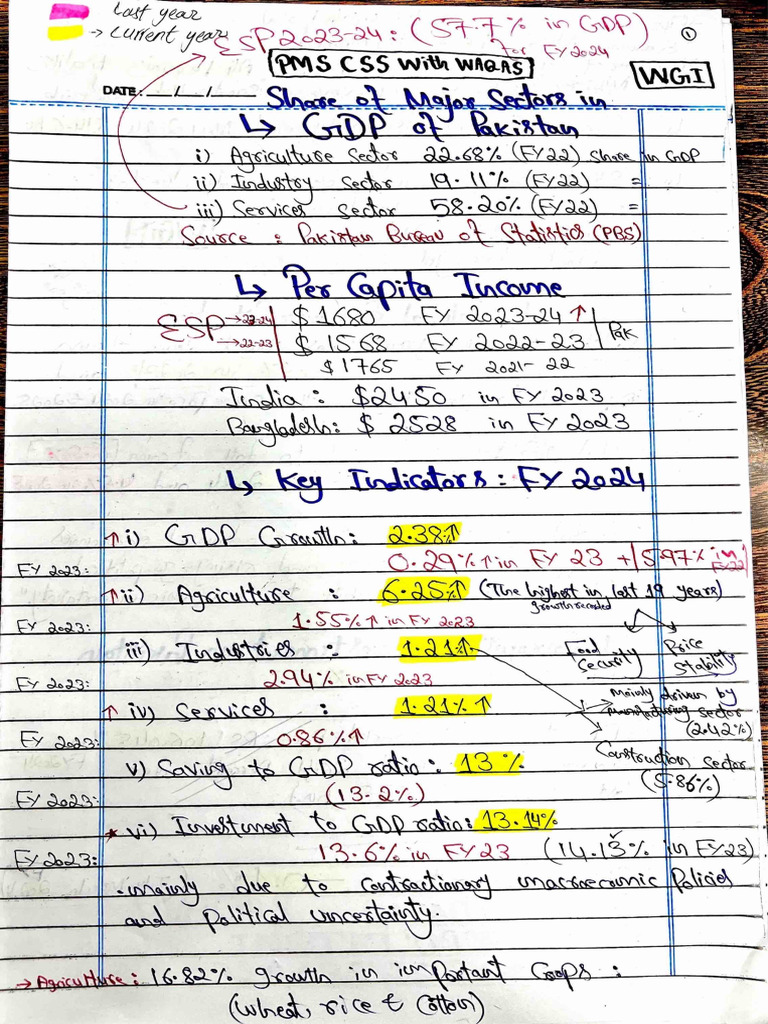 Last year
→ Current year
ESP 2023-24: (57.7% in GDP)
for FY2024
①
PMS CSS With WAQAS
WGI
DATE: __/__/__
Share of Major Sectors in
↳ GDP of Pakistan
i) Agriculture Sector 22.68% (FY22) Share in GDP
ii) Industry sector 19.11% (FY22) =
iii) Services Sector 58.20% (FY22) =
Source : Pakistan Bureau of Statistics (PBS)
↳ Per Capita Income
ESP →23-24 $1680 FY 2023-24 ↑
→22-23 $1568 FY 2022-23 Pak
$1765 FY 2021-22
India : $2450 in FY 2023
Bangladesh: $ 2528 in FY 2023
↳ Key Indicators : FY 2024
↑ i) GDP Growth: 2.38%↑
FY 2023: 0.29%↑ in FY 23 + 5.97% in FY22
↑ ii) Agriculture : 6.25%↑ (The highest in last 19 years)
growth recorded
FY 2023: 1.55%↑ in FY 2023
iii) Industries : 1.21↑
Food Security
Price Stability
FY 2023: 2.94% in FY 2023
↑ iv) Services : 1.21%↑
Mainly driven by
manufacturing sector
(2.42%)
FY 2023: 0.86%↑
Construction sector
(5.86%)
v) Saving to GDP ratio : 13%
FY 2023: (13.2%)
* vi) Investment to GDP ratio: 13.14%
FY 2023: 13.6% in FY23 (14.13% in FY23)
.mainly due to contractionary macroeconomic Policies
and political uncertainty.
→ Agriculture : 16.82% growth in important Crops :
(Wheat, rice & Cotton)